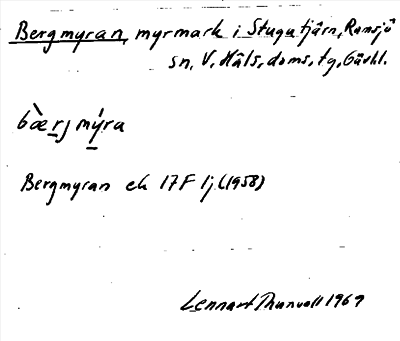 Bergmyran, myrmark i Stugutjärn, Ramsjö
sn, V. Häls. doms. tg, Gävhl.
bæ̀rj mýra
Bergmyran ek 17F 1j (1958)
Lennart Thunvall 1969